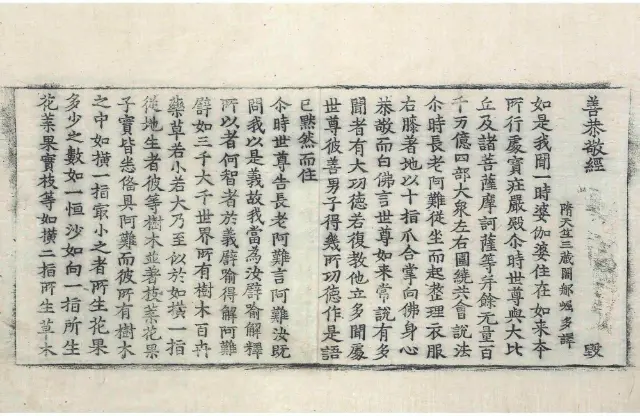 善恭敬經 毀
隋天竺三藏闍那崛多譯
如是我聞一時婆伽婆住在如來本
所行處寶莊嚴殿尒時世尊與大比
丘及諸菩薩摩訶薩等幷餘无量百
千万億四部大衆左右圍繞共會說法
尒時長老阿難從坐而起整理衣服
右膝著地以十指爪合掌向佛身心
恭敬而白佛言世尊如來常說有多
聞者有大功德若復教他立多聞處
世尊彼善男子得幾所功德作是語
已黙然而住
尒時世尊告長老阿難言阿難汝旣
問我以是義故我當爲汝譬喻解釋
所以者何智者於義譬喻得解阿難
譬如三千大千世界所有樹木百卉
藥草若小若大乃至似於如橫一指
從地生者彼等樹木並著枝葉花果
子實皆悉俻具阿難而彼所有樹木
之中如橫一指最小之者所生花果
多少之數如一恒沙如向一指所生
花葉果實枝等如橫二指所生草木